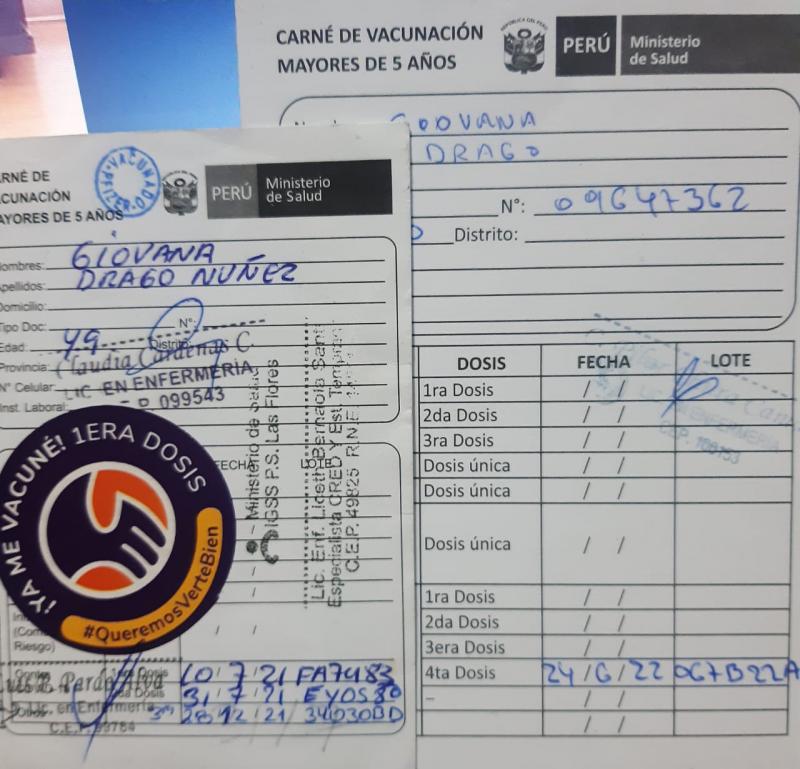 CARNÉ DE VACUNACIÓN
MAYORES DE 5 AÑOS
PERÚ
Ministerio
de Salud
GIOVANA
DRAGO
N°: 09647362
Distrito:
DOSIS FECHA LOTE
1ra Dosis / /
2da Dosis / /
3ra Dosis / /
Dosis única / /
Dosis única / /
Dosis única / /
1ra Dosis / /
2da Dosis / /
3era Dosis / /
4ta Dosis 24/6/22 067B22A
– / /
/ /
LIC EN ENFERMERÍA
RNÉ DE
CUNACIÓN
AYORES DE 5 AÑOS
VACUNADO PFIZER
PERÚ
Ministerio
de Salud
ombres: GIOVANA
pellidos: DRAGO NUÑEZ
omicilio:
Tipo Doc: N°
Edad: 49 Distrito:
Provincia: Claudia Cardenas C.
N° Celular: LIC EN ENFERMERÍA
Inst. Laboral: 099543
Ministerio de Salud
IGSS P.S. Las Flores
Lic. Enf. Liceth
Especialista CRED Y Est.
C.E.P. 49825 R.N.E.
¡YA ME VACUNÉ! 1ERA DOSIS
#QueremosVerteBien
FECHA
Riesgo) / /
Dosis 10 7 21 FA7483
Dosis 31 7 21
3ra 28 12 21
en Enfermería
C.E.P.